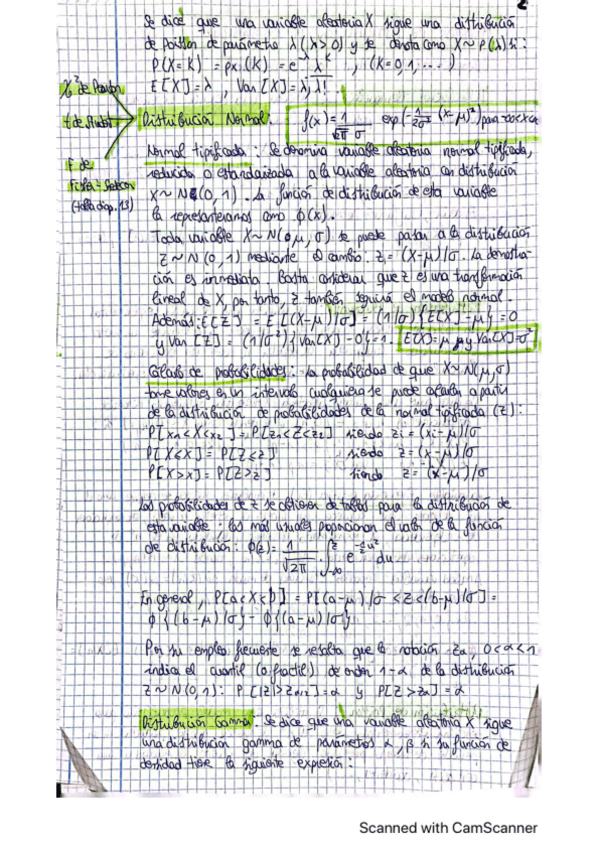 2
Se dice que una variable aleatoria X sigue una distribución
de poisson de parámetro λ (λ>0) y se denota como X~P(λ) si:
P(X=K) = px(K) = e^-λ λ^K / λ! , (K=0,1,...)
E[X]=λ, Var[X]=λ
χ² de Pearson
t de Student
F de
Fisher-Snedecor
(tabla diap. 13)
Distribución Normal: f(x) = 1/√2π σ exp(-1/2σ² (x-μ)²) para -∞<x<∞
Normal tipificada: Se denomina variable aleatoria normal tipificada,
reducida o estandarizada a la variable aleatoria con distribución
X~N(0,1). La función de distribución de esta variable
la representaremos como φ(x).
Toda variable X~N(μ,σ) se puede pasar a la distribución
Z~N(0,1) mediante el cambio: z=(X-μ)/σ. La demostra-
ción es inmediata. Basta considerar que z es una transformación
lineal de X, por tanto, z también seguirá el modelo normal.
Además: E[Z] = E[(X-μ)/σ] = (1/σ){E[X]-μ}=0
y Var[Z] = (1/σ²){Var[X]-0}=1. E(X)=μ y Var(X)=σ²
Cálculo de probabilidades: La probabilidad de que X~N(μ,σ)
tome valores en un intervalo cualquiera se puede calcular a partir
de la distribución de probabilidades de la normal tipificada (z):
P[x1<X<x2]=P[z1<Z<z2] siendo zi=(xi-μ)/σ
P[X≤x]=P[Z≤z] siendo z=(x-μ)/σ
P[X>x]=P[Z>z] siendo z=(x-μ)/σ
Las probabilidades de z se obtienen de tablas para la distribución de
esta variable; las más usuales proporcionan el valor de la función
de distribución: φ(z)= 1/√2π ∫ -∞ z e^-½u² du
En general, P[a<X<b] = P[(a-μ)/σ <Z<(b-μ)/σ] =
φ{(b-μ)/σ} - φ{(a-μ)/σ}
Por su empleo frecuente se resalta que la notación zα, 0<α<1
indica el cuantil (o fractil) de orden 1-α de la distribución
Z~N(0,1): P[|Z|>zα/2]=α y P[Z>zα]=α
Distribución Gamma: Se dice que una variable aleatoria X sigue
una distribución gamma de parámetros α, β si su función de
densidad tiene la siguiente expresión:
Scanned with CamScanner